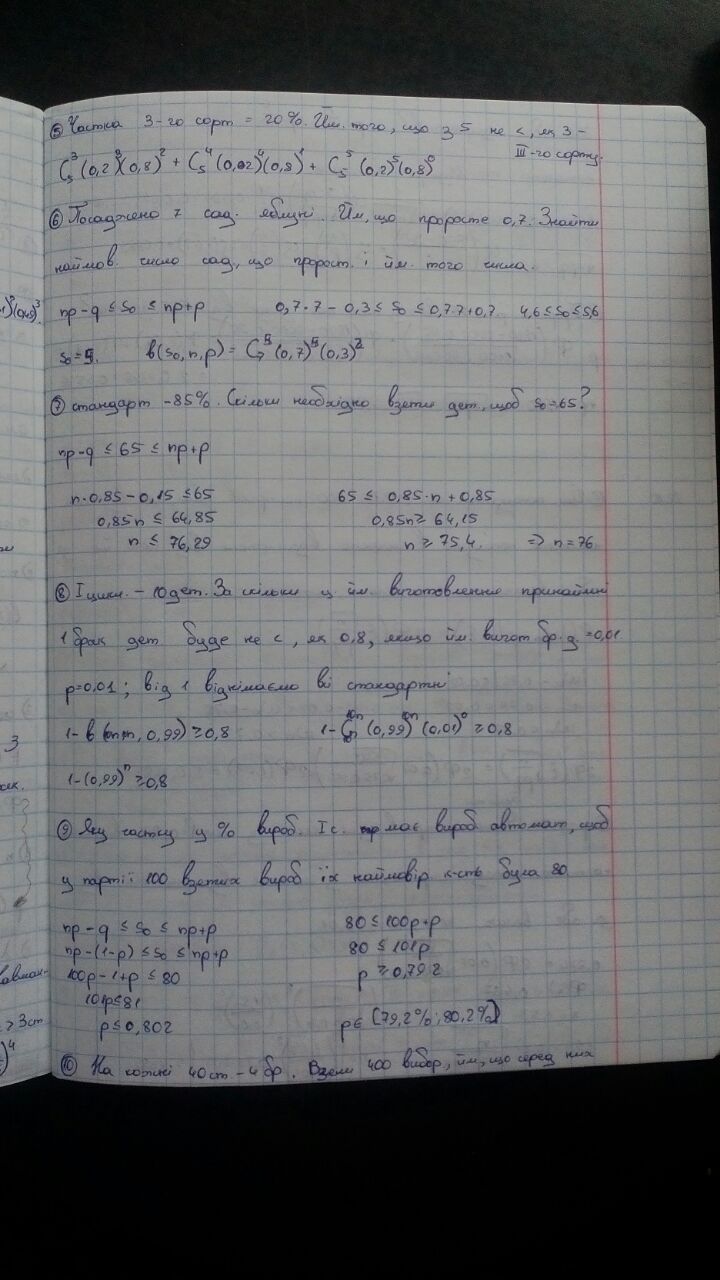 ⑤ Частка 3-го сорт = 20%. Йм. того, що з 5 не <, як 3 -
III-го сорту.
C₅³(0,2)³(0,8)² + C₅⁴(0,02)⁴(0,8)¹ + C₅⁵(0,2)⁵(0,8)⁰
⑥ Посаджено 7 сад. яблуні. Йм, що проросте 0,7. Знайти
наймов. число сад, що пророст. і йм. того числа.
np-q ≤ s₀ ≤ np+p 0,7·7-0,3 ≤ s₀ ≤ 0,7·7+0,7 4,6 ≤ s₀ ≤ 5,6
s₀=5. b(s₀, n, p) = C₇⁵(0,7)⁵(0,3)²
⑦ стандарт -85%. Скільки необхідно взяти дет, щоб s₀=65?
np-q ≤ 65 ≤ np+p
n·0,85-0,15 ≤ 65 65 ≤ 0,85·n+0,85
0,85n ≤ 64,85 0,85n ≥ 64,15
n ≤ 76,29 n ≥ 75,4. => n=76
⑧ 1 цикл. - 10 дет. За скільки ц йм. виготовлення принаймні
1 брак дет буде не <, як 0,8, якщо йм. вигот бр. д. =0,01
p=0,01; від 1 віднімаємо всі стандартні
1-b( , 0,99) ≥ 0,8 1-C (0,99) (0,01)⁰ ≥ 0,8
1-(0,99)ⁿ ≥ 0,8
⑨ Яку частку у % вироб. I с. має вироб автомат, щоб
у партії 100 взятих вироб їх наймовір к-сть була 80
np-q ≤ s₀ ≤ np+p 80 ≤ 100p+p
np-(1-p) ≤ s₀ ≤ np+p 80 ≤ 101p
100p-1+p ≤ 80 p ≥ 0,792
101p ≤ 81
p ≤ 0,802 p ∈ [79,2%; 80,2%]
⑩ На кожні 40 ст - 4 бр. Взяли 400 вибор, йм, що серед них